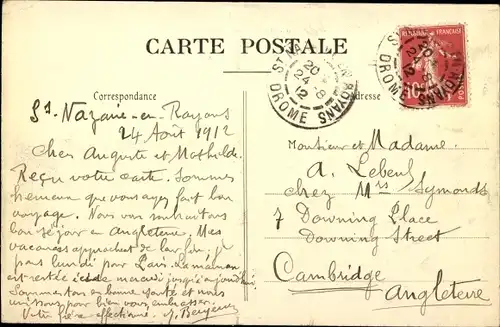 CARTE POSTALE
Correspondance
Adresse
St Nazaire-en-Royans
24 Août 1912
Cher Auguste et Mathilde.
Reçu votre carte. Sommes
heureux que vous ayez fait bon
voyage. Nous vous souhaitons
bon séjour en Angleterre. Mes
vacances approchent de leur fin. je
pars lundi pour Paris. La maman
est restée
Sommes tous en bonne santé et nous
unissons pour bien vous embrasser.
Votre frère affectionné
Monsieur et Madame
A. Lebeuf
chez Mrs Symonds
7 Downing Place
Downing Street
Cambridge
Angleterre
20
24-8
12
DROME
10
DROME